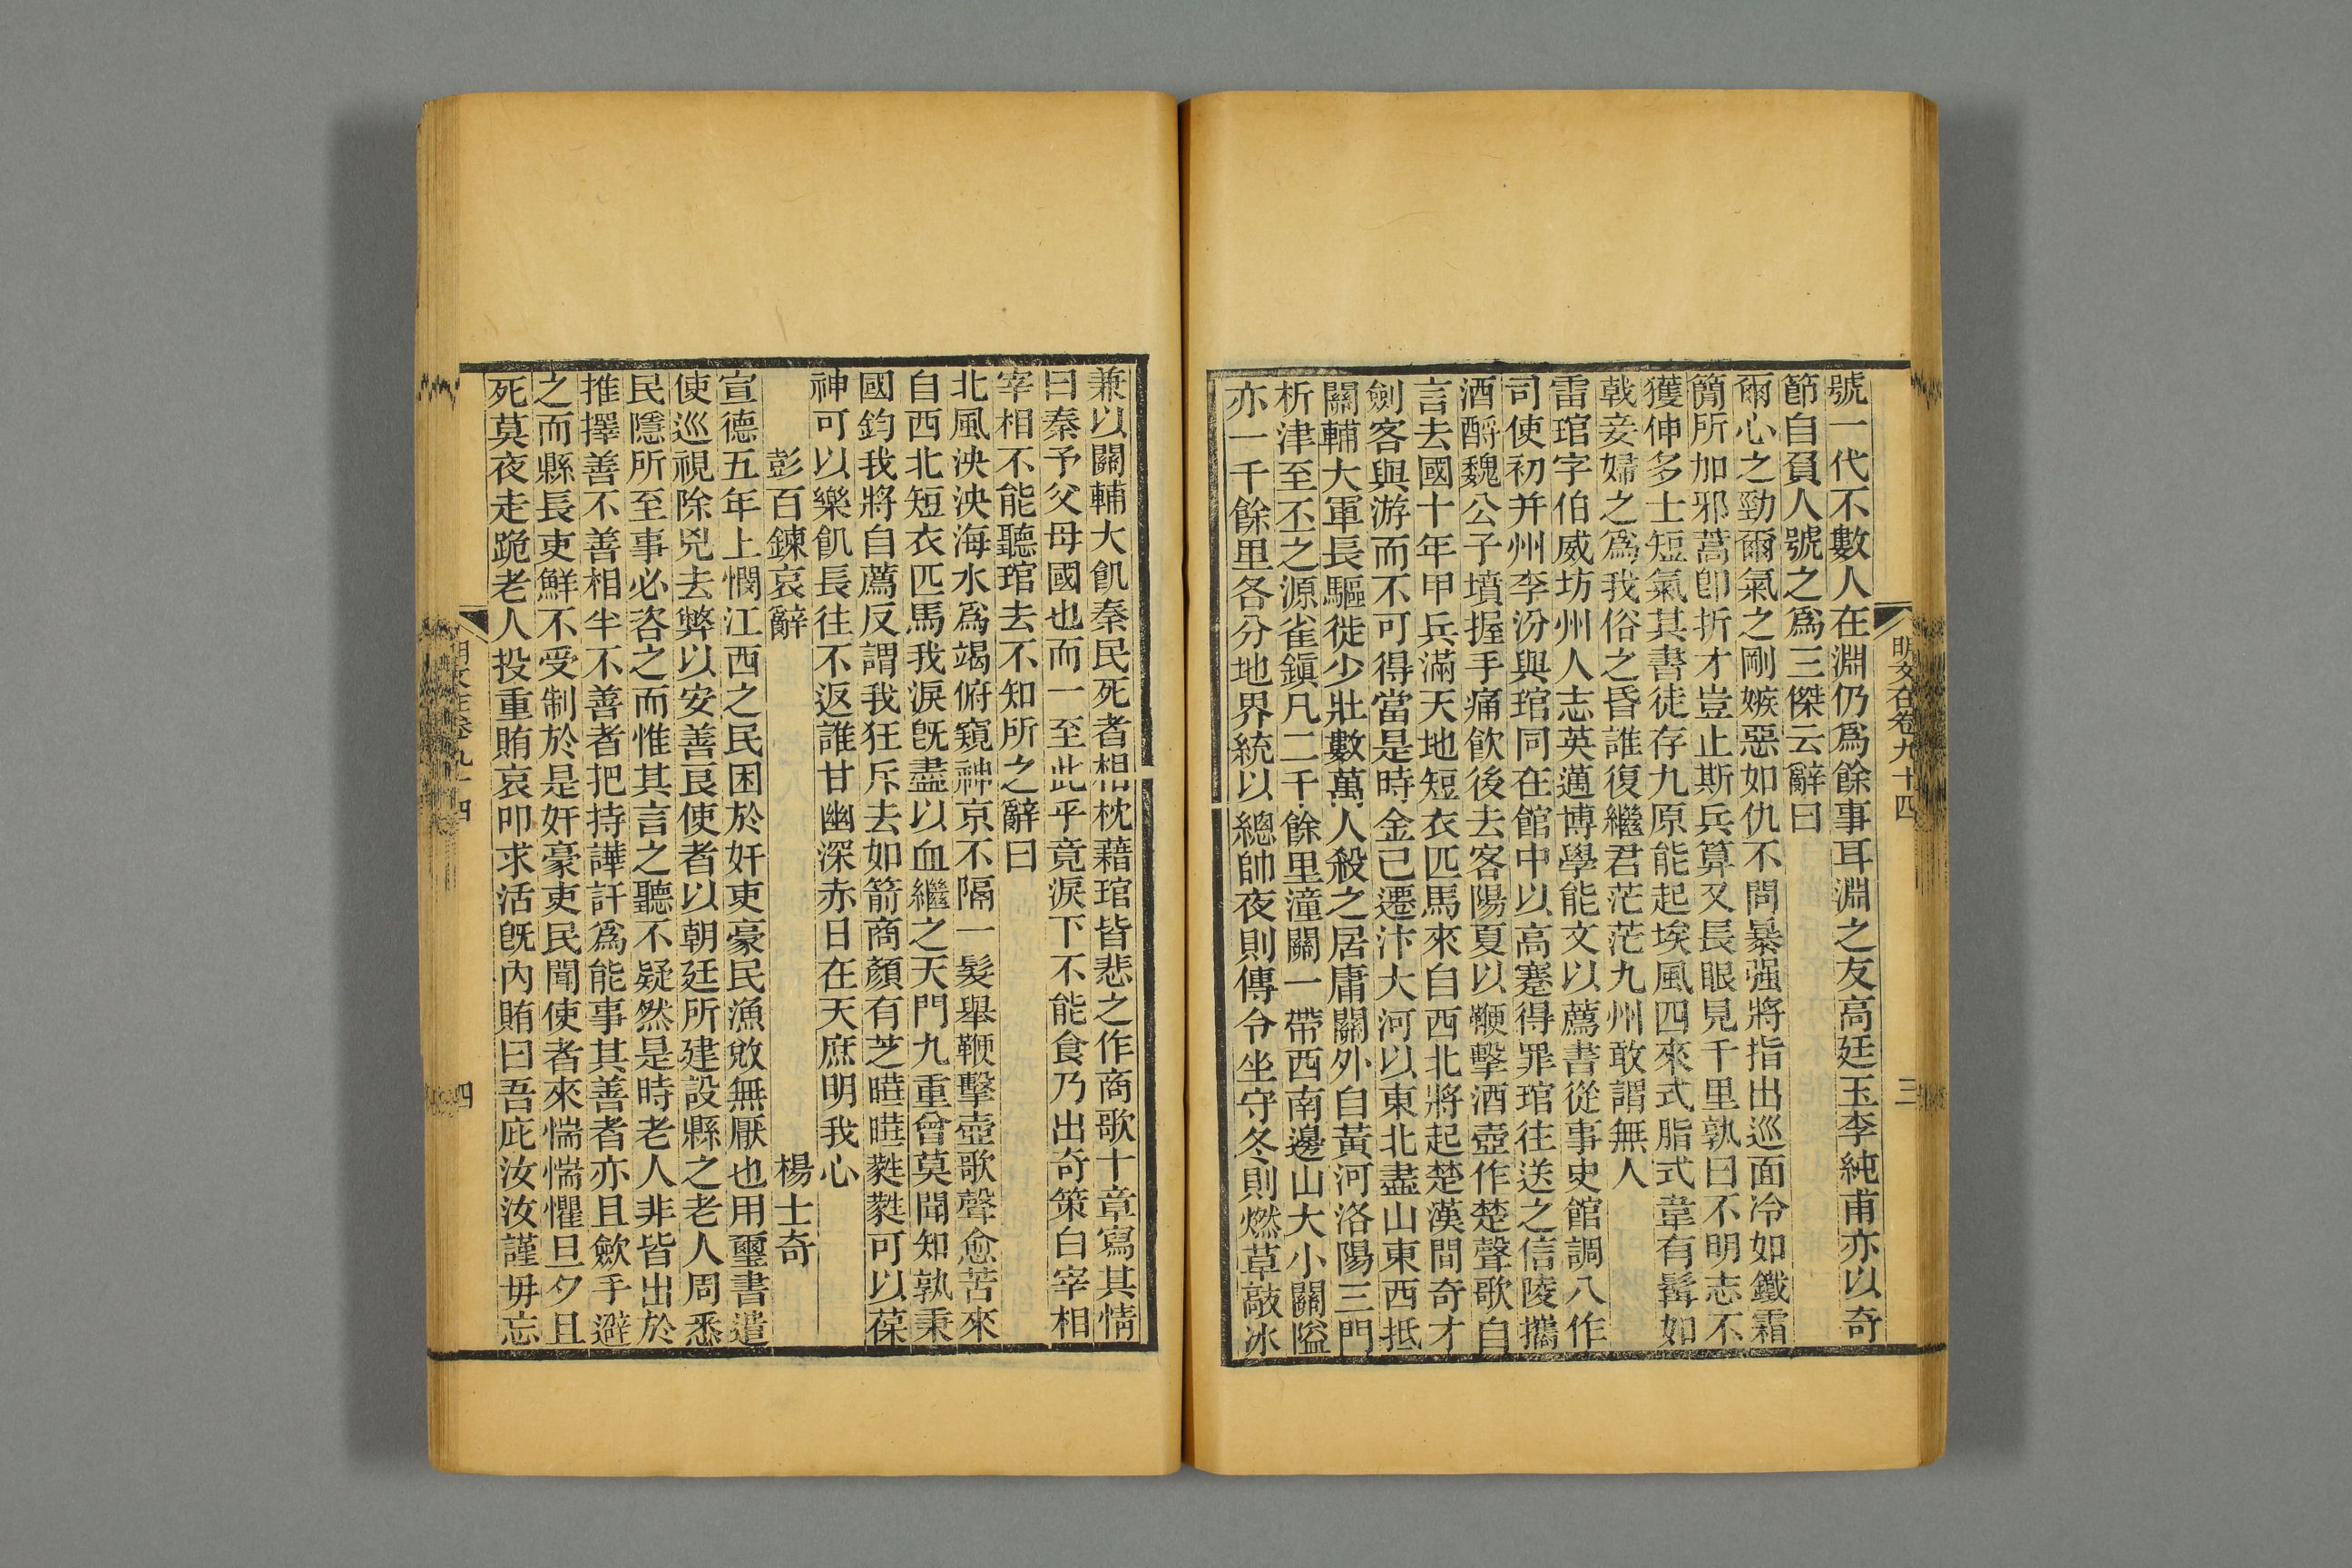 明文在卷九十四
三
號一代不數人在淵仍爲餘事耳淵之友高廷玉李純甫亦以奇
節自負人號之爲三傑云辭曰
爾心之勁爾氣之剛嫉惡如仇不問暴强將指出巡面冷如鐵霜
簡所加邪蒿卽折才豈止斯兵算又長眼見千里孰曰不明志不
獲伸多士短氣其書徒存九原能起埃風四來式脂式韋有髯如
戟妾婦之爲我俗之昏誰復繼君茫茫九州敢謂無人
雷琯字伯威坊州人志英邁博學能文以薦書從事史館調八作
司使初并州李汾與琯同在館中以高蹇得罪琯往送之信陵攜
酒酹魏公子墳握手痛飲後去客陽夏以鞭擊酒壺作楚聲歌自
言去國十年甲兵滿天地短衣匹馬來自西北將起楚漢間奇才
劍客與游而不可得當是時金已遷汴大河以東北盡山東西抵
關輔大軍長驅徙少壯數萬人殺之居庸關外自黃河洛陽三門
析津至丕之源雀鎭凡二千餘里潼關一帶西南邊山大小關隘
亦一千餘里各分地界統以總帥夜則傳令坐守冬則燃草敲冰
兼以關輔大飢秦民死者相枕藉琯皆悲之作商歌十章寫其情
曰秦予父母國也而一至此乎竟淚下不能食乃出奇策白宰相
宰相不能聽琯去不知所之辭曰
北風泱泱海水爲竭俯窺神京不隔一髮舉鞭擊壺歌聲愈苦來
自西北短衣匹馬我淚旣盡以血繼之天門九重曾莫聞知孰秉
國鈞我將自薦反謂我狂斥去如箭商顏有芝曄曄蕤蕤可以葆
神可以樂飢長往不返誰甘幽深赤日在天庶明我心
彭百鍊哀辭　楊士奇
宣德五年上憫江西之民困於奸吏豪民漁斂無厭也用璽書遣
使巡視除兇去弊以安善良使者以朝廷所建設縣之老人周悉
民隱所至事必咨之而惟其言之聽不疑然是時老人非皆出於
推擇善不善相半不善者把持譁訐爲能事其善者亦且歛手避
之而縣長吏鮮不受制於是奸豪吏民聞使者來惴惴懼旦夕且
死莫夜走跪老人投重賄哀叩求活旣內賄曰吾庇汝汝謹毋忘
明文在卷九十四
四